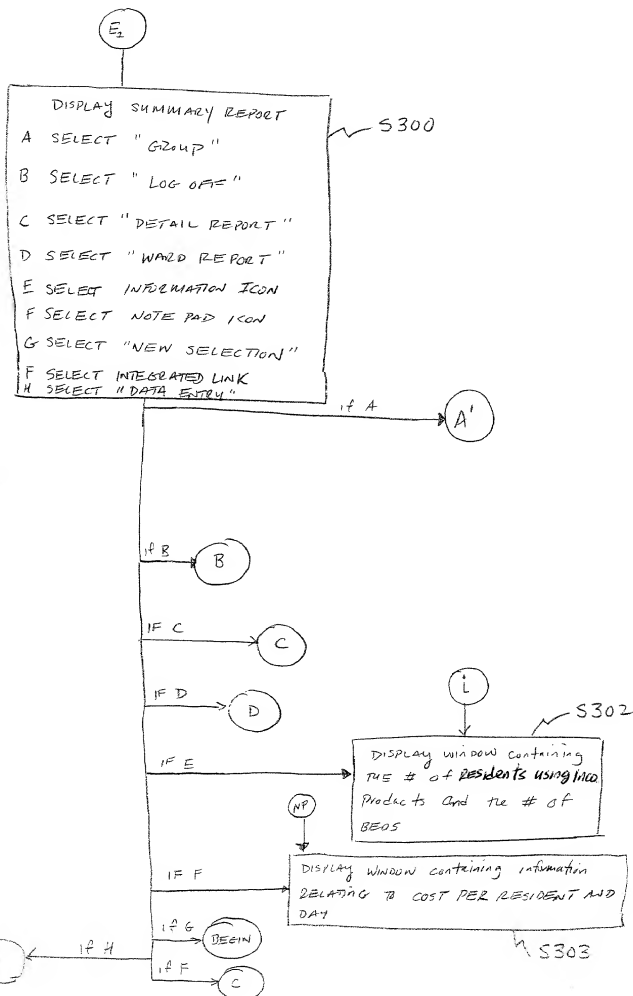 E2
DISPLAY SUMMARY REPORT
S300
A SELECT "GROUP"
B SELECT "LOG OFF"
C SELECT "DETAIL REPORT"
D SELECT "WARD REPORT"
E SELECT INFORMATION ICON
F SELECT NOTE PAD ICON
G SELECT "NEW SELECTION"
F SELECT INTEGRATED LINK
H SELECT "DATA ENTRY"
if A
A'
if B
B
IF C
C
IF D
D
i
S302
IF E
DISPLAY WINDOW containing
THE # of Residents using Inco
Products and the # of
BEDS
NP
IF F
DISPLAY WINDOW containing information
RELATING TO COST PER RESIDENT AND
DAY
S303
if G
BEGIN
if H
if F
C